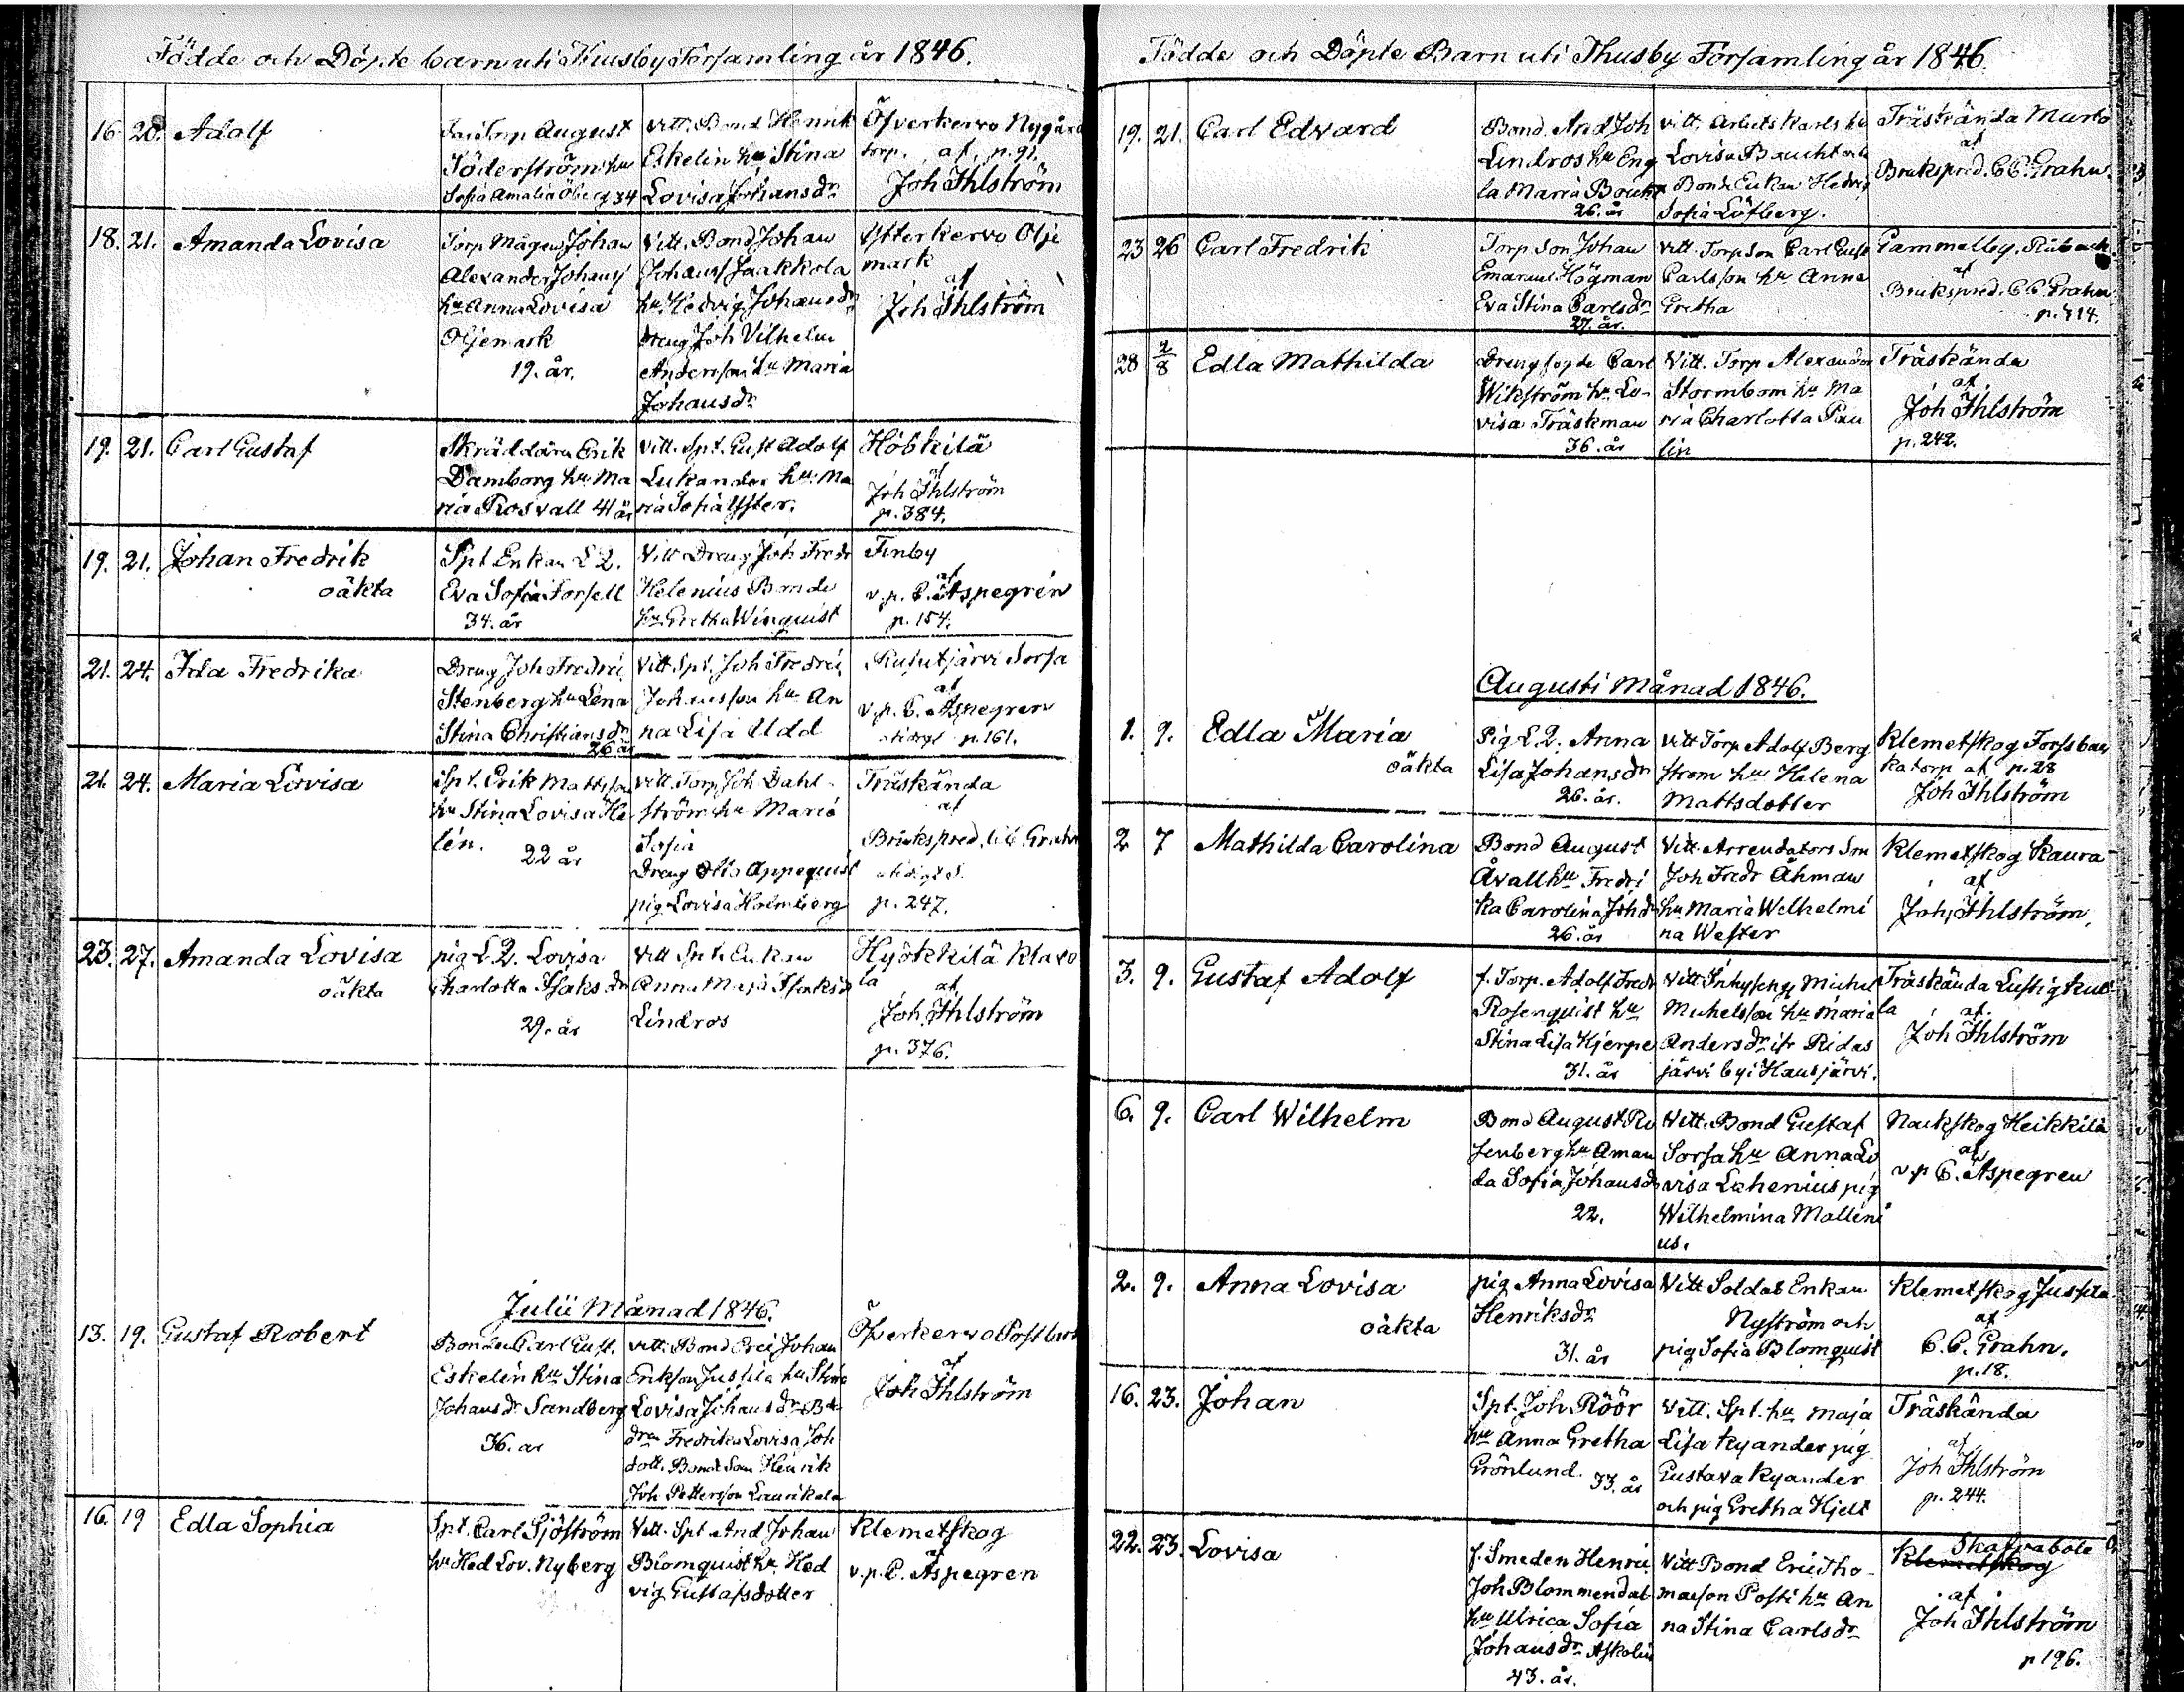 Födde och Döpte barn uti Thusby Församling år 1846.
16. 20. Adolf
Torp August
Söderström hu
Sofia Amalia Öberg 34
Vitt. Bond Henrik
Eskelin hu Stina
Lovisa Johansdr
Öfverkervo Nygård
torp. af p. 91.
Joh Ihlström
18. 21. Amanda Lovisa
Torp Mågen Johan
Alexander Johanss
hu Anna Lovisa
Oljemark
19. år.
Vitt. Bond Johan
Johanss Jaakkola
hu Hedvig Johansdr
Dreng Joh Vilhelm
Andersson hu Maria
Johansdr
Ytterkervo Olje
mark
af
Joh Ihlström
19. 21. Carl Gustaf
Skräddaren Erik
Damborg hu Ma
ria Rosvall 41 år
Vitt. Spt. Gust Adolf
Lukander hu Ma
ria Sofia
Höökilä
af
Joh Ihlström
p. 384.
19. 21. Johan Fredrik
oäkta
Spt Enkan L 2.
Eva Sofia Forsell
34. år
Vitt Dreng Joh Fredr
Helenius Bonde
hu Gretha Winquist
Finby
af
v.p. C. Aspegrén
p. 154.
21. 24. Ida Fredrika
Dreng Joh Fredric
Stenberg hu Lena
Stina Christiansdr
26 år
Vitt Spt. Joh Fredric
Johansson hu An
na Lisa Udd
Rusutjärvi Sorsa
af
v.p. C. Aspegren
p. 161.
21. 24. Maria Lovisa
Spt. Erik Mattsson
hu Stina Lovisa He
lén.
22 år
Vitt. Torp Joh Dahl
ström hu Maria
Sofia
Dreng Otto Appequist
pig Lovisa Holmberg
Träskända
af
Brukspred. C C Grahn
p. 247.
23. 27. Amanda Lovisa
oäkta
pig L 2. Lovisa
Charlotta Isaksdr
29. år
Vitt Spt. Enkan
Anna Maja Isaksdr
Lindros
Hyökkilä Klavo
la af
Joh. Ihlström
p. 376.
Julii Månad 1846.
13. 19. Gustaf Robert
Bonden Carl Gust.
Eskelin hu Stina
Johansdr Sandberg
36. år
Vitt. Bond Eric Johan
Erikson Jussila hu Stina
Lovisa Johansdr B
dra Fredrika Lovisa Joh
dott. Bonde Son Henrik
Joh Pettersson Laurikala
Öfverkervo Postbur
af
Joh Ihlström
16. 19 Edla Sophia
Spt. Carl Sjöström
hu Hed Lov. Nyberg
Vitt. Spt And Johan
Blomquist hu Hed
vig Gustafsdotter
Klemetskog
af
v.p. C. Aspegren
Födde och Döpte Barn uti Thusby Församling år 1846
19. 21. Carl Edvard
Bond. And Joh
Lindros hu Eng
la Maria Boucht
26. år
Vitt. Arbets Karls hu
Lovisa Boucht och
Bonde Enkan Hedvig
Sofia Löfberg.
Träskända Murto
af
Brukspred. C C Grahn.
23 26 Carl Fredrik
Torp Son Johan
Emanuel Högman
Eva Stina Carlsdr
27. år.
Vitt. Torp Son Carl Gust
Carlsson hu Anna
Gretha
Gammelby,
af
Brukspred. C C Grahn
p. 414.
28 2/8 Edla Mathilda
Drengfogde Carl
Wikström hu Lo-
visa Träskman
36. år
Vitt. Torp Alexander
Stormbom hu Ma
ria Charlotta Pau
lin
Träskända
af
Joh Ihlström
p. 242.
Augusti Månad 1846.
1. 9. Edla Maria
oäkta
Pig L 2. Anna
Lisa Johansdr
26. år.
Vitt Torp Adolf Berg
strom hu Helena
Mattsdotter
Klemetskog Forssbac
ka torp af p. 28
Joh Ihlström
2 7 Mathilda Carolina
Bond August
Åvall hu Fredri
ka Carolina Johdr
26. år
Vitt. Arrendators Son
Joh Fredr Åhman
hu Maria Wilhelmi
na Wester
Klemetskog Kaura
af
Joh, Ihlström,
3. 9. Gustaf Adolf
f. Torp. Adolf Fredr
Rosenquist hu
Stina Lisa Hjerpe
31. år
Vitt Inhyseng Michel
Michelsson hu Maria
Andersdr ifr Ridas
järvi by i Hausjärvi.
Träskända Lustigkul
la af.
Joh Ihlström
6. 9. Carl Wilhelm
Bond August Ro
senberg hu Aman
da Sofia Johansdr
22.
Vitt. Bond Gustaf
Sorsa hu Anna Lo
visa Lahenius pig
Wilhelmina Malleni
us.
Nackskog Heikkilä
af
v.p C. Aspegren
2. 9. Anna Lovisa
oäkta
pig Anna Lovisa
Henriksdr
31. år
Vitt Soldat Enkan
Nyström och
pig Sofia Blomquist
Klemetskog Jussila
af
C. C. Grahn.
p. 18.
16. 23. Johan
Spt. Joh Röör
hu Anna Gretha
Grönlund. 33. år
Vitt. Spt. hu Maja
Lisa Kyander pig
Gustava Kyander
och pig Gretha Hjelt
Träskända
af
Joh Ihlström
p. 244.
22. 23. Lovisa
f. Smeden Henric
Joh Blommendal
hu Ulrica Sofia
Johansdr Askolin
43. år.
Vitt Bond Eric Tho-
masson Posti hu An
na Stina Carlsdr
Skafvaböle
Klemetskog
af
Joh Ihlström
p 196.